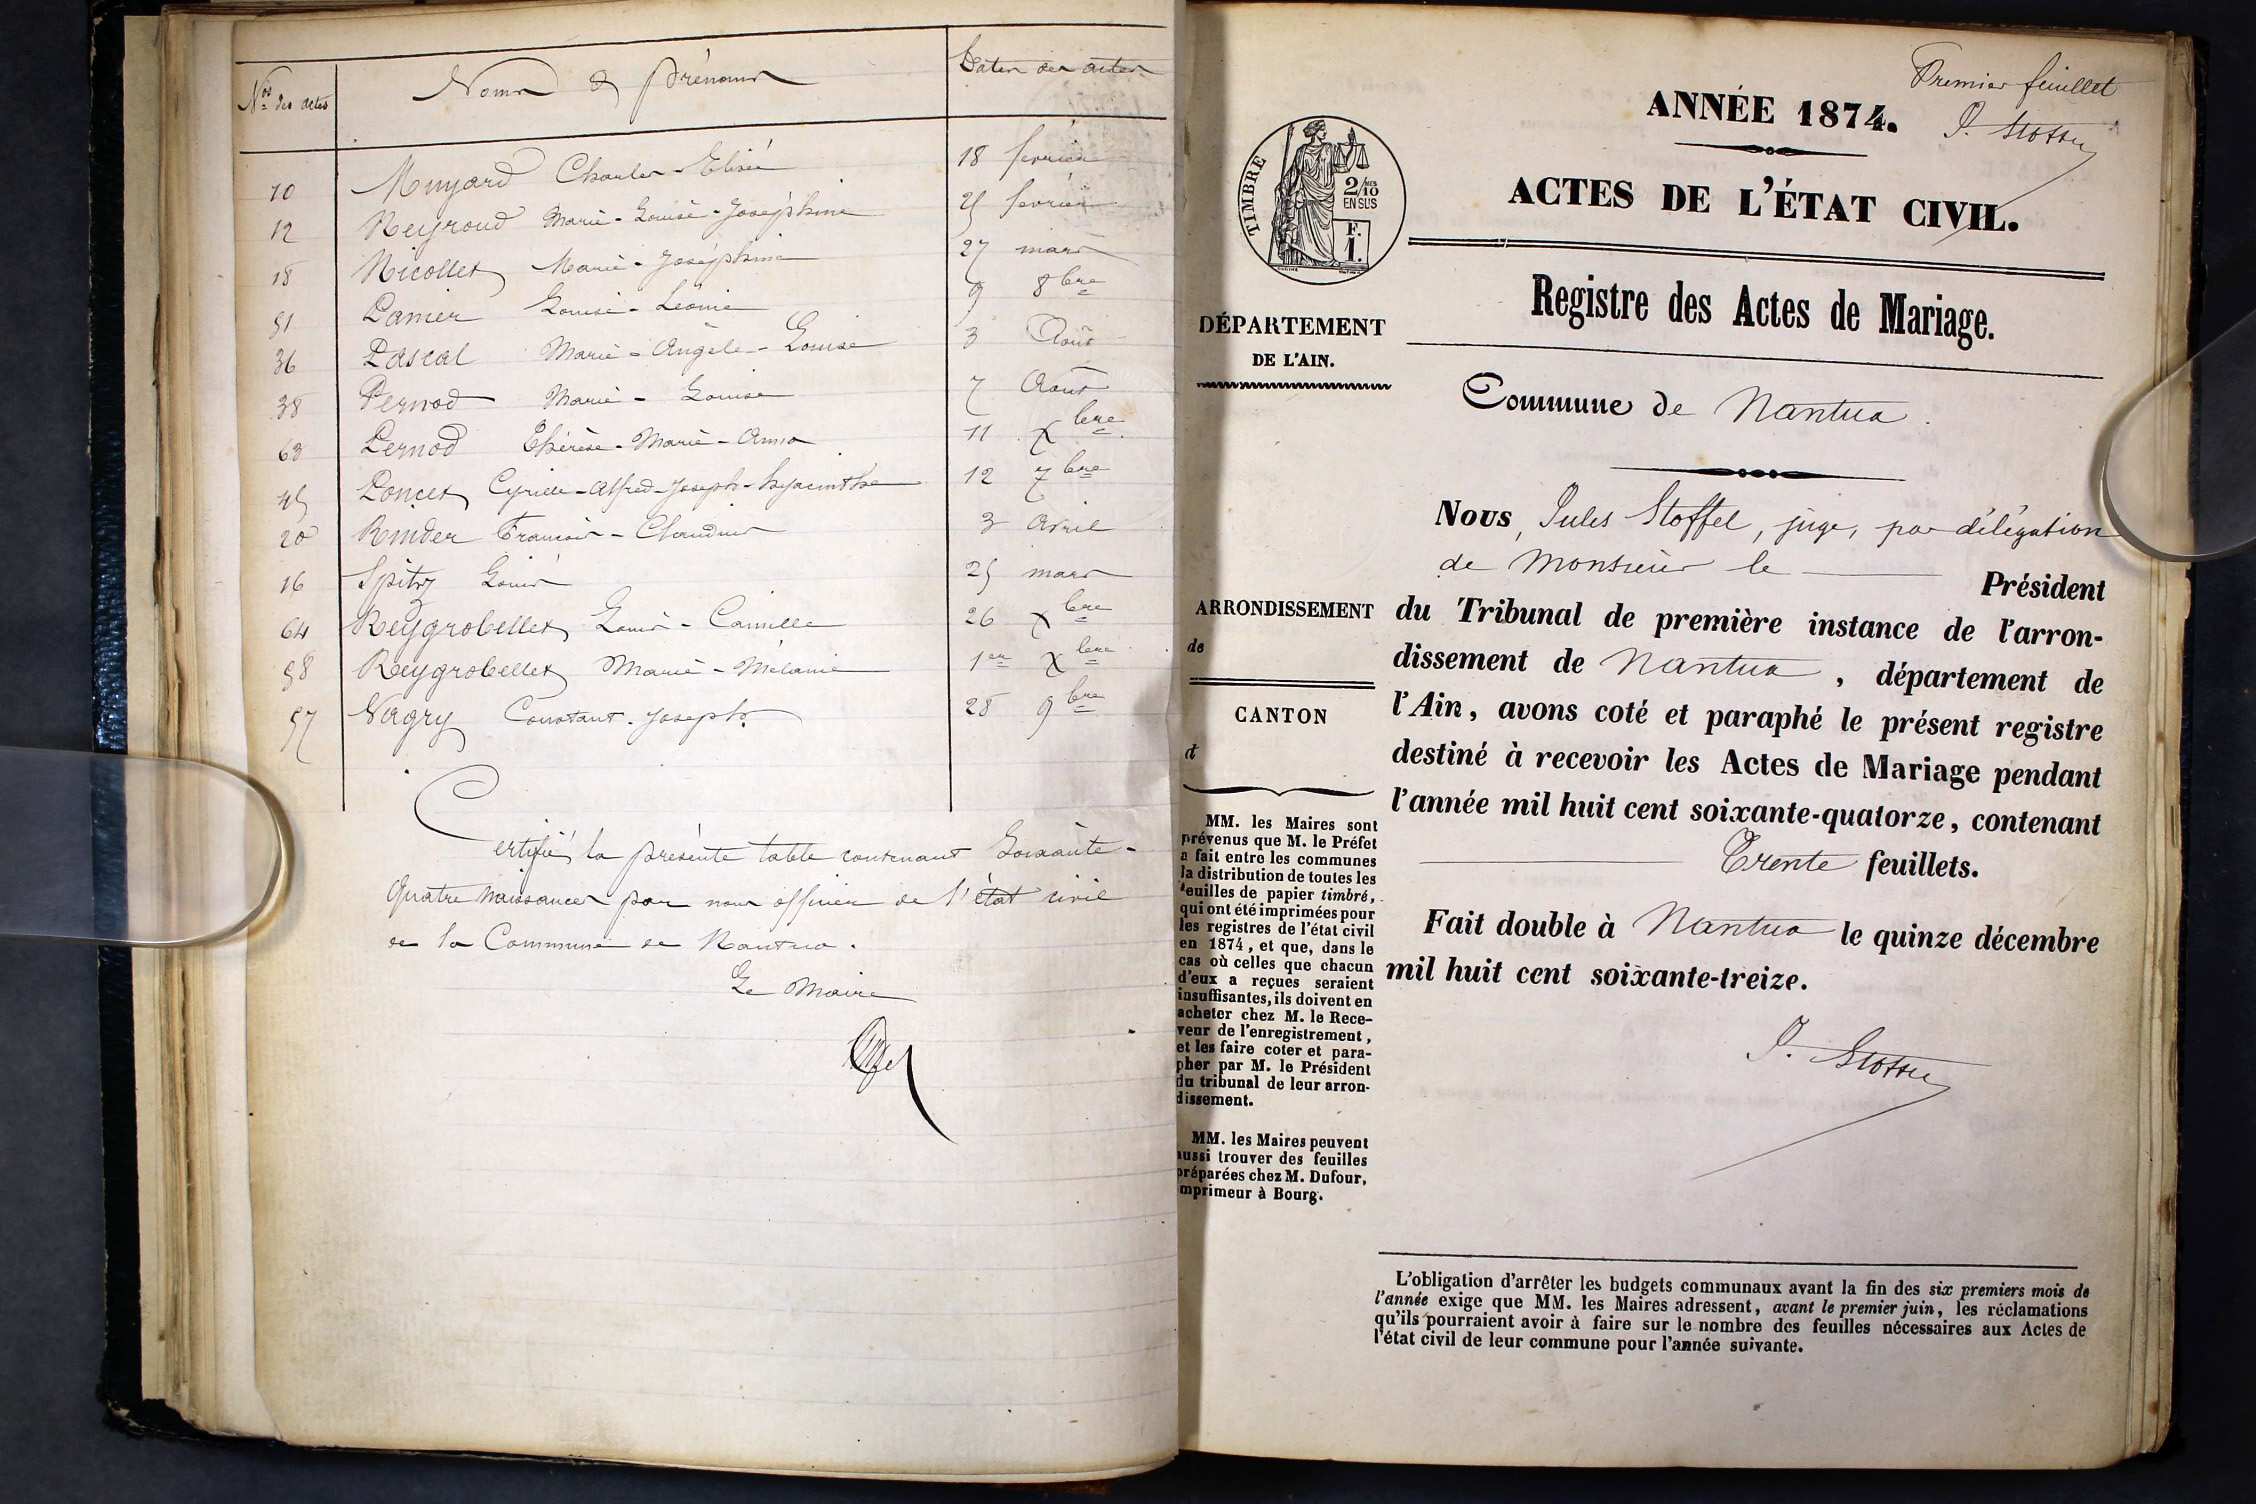 Nos des actes Noms & prénoms Dates des actes
10 Muyard Charles-Elisée 18 février
12 Neyroud Marie-Louise-Joséphine 25 février
18 Nicollet Marie-Joséphine 27 mars
51 Panier Louise-Léonie 9 8bre
36 Pascal Marie-Angèle-Louise 3 Août
38 Pernod Marie-Louise 7 Août
63 Pernod Thérèse-Marie-Anna 11 Xbre
45 Poncet Cyrille-Alfred-Joseph-hyacinthe 12 7bre
20 Rinder François-Claudius 3 Avril
16 Spitz Louis 25 mars
64 Reygrobellet Louis-Camille 26 Xbre
58 Reygrobellet Marie-Mélanie 1er Xbre
57 Vagry Constant-Joseph 28 9bre
Certifié la présente table contenant Soixante-
quatre naissances par nous officier de l'état civil
de la Commune de Nantua.
Le Maire
Premier feuillet
J. Stoffel
ANNÉE 1874.
ACTES DE L'ÉTAT CIVIL.
TIMBRE
2/10MES
EN SUS
F.
1.
Registre des Actes de Mariage.
DÉPARTEMENT
DE L'AIN.
Commune de Nantua.
Nous, Jules Stoffel, juge, par délégation
de Monsieur le Président
ARRONDISSEMENT
de
CANTON
d
du Tribunal de première instance de l'arron-
dissement de Nantua, département de
l'Ain, avons coté et paraphé le présent registre
destiné à recevoir les Actes de Mariage pendant
l'année mil huit cent soixante-quatorze, contenant
Trente feuillets.
Fait double à Nantua le quinze décembre
mil huit cent soixante-treize.
J. Stoffel
MM. les Maires sont
prévenus que M. le Préfet
a fait entre les communes
la distribution de toutes les
feuilles de papier timbré,
qui ont été imprimées pour
les registres de l'état civil
en 1874, et que, dans le
cas où celles que chacun
d'eux a reçues seraient
insuffisantes, ils doivent en
acheter chez M. le Rece-
veur de l'enregistrement,
et les faire coter et para-
pher par M. le Président
du tribunal de leur arron-
dissement.
MM. les Maires peuvent
aussi trouver des feuilles
préparées chez M. Dufour,
imprimeur à Bourg.
L'obligation d'arrêter les budgets communaux avant la fin des six premiers mois de
l'année exige que MM. les Maires adressent, avant le premier juin, les réclamations
qu'ils pourraient avoir à faire sur le nombre des feuilles nécessaires aux Actes de
l'état civil de leur commune pour l'année suivante.